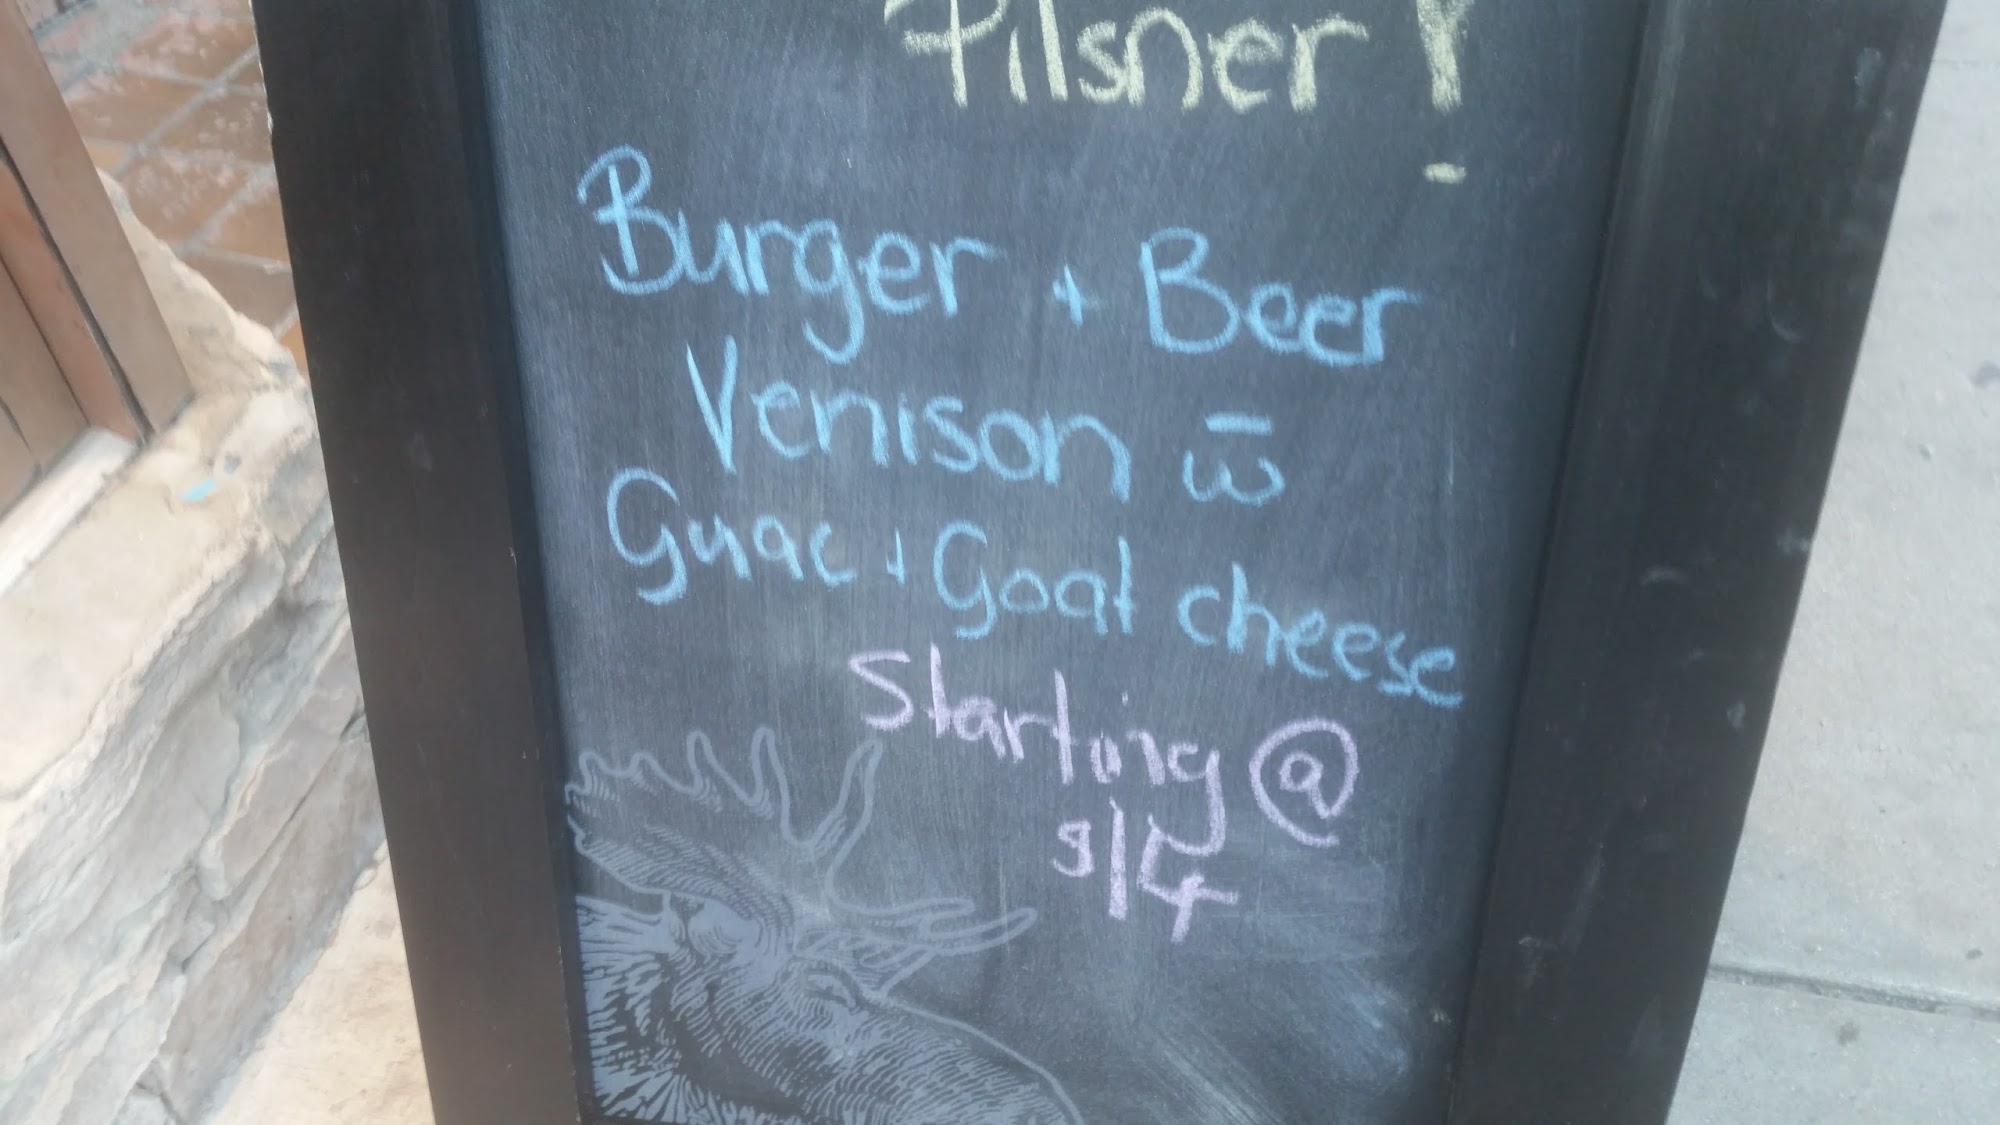 Pilsner!
Burger + Beer
Venison w̄
Guac + Goat cheese
Starting @
9/4